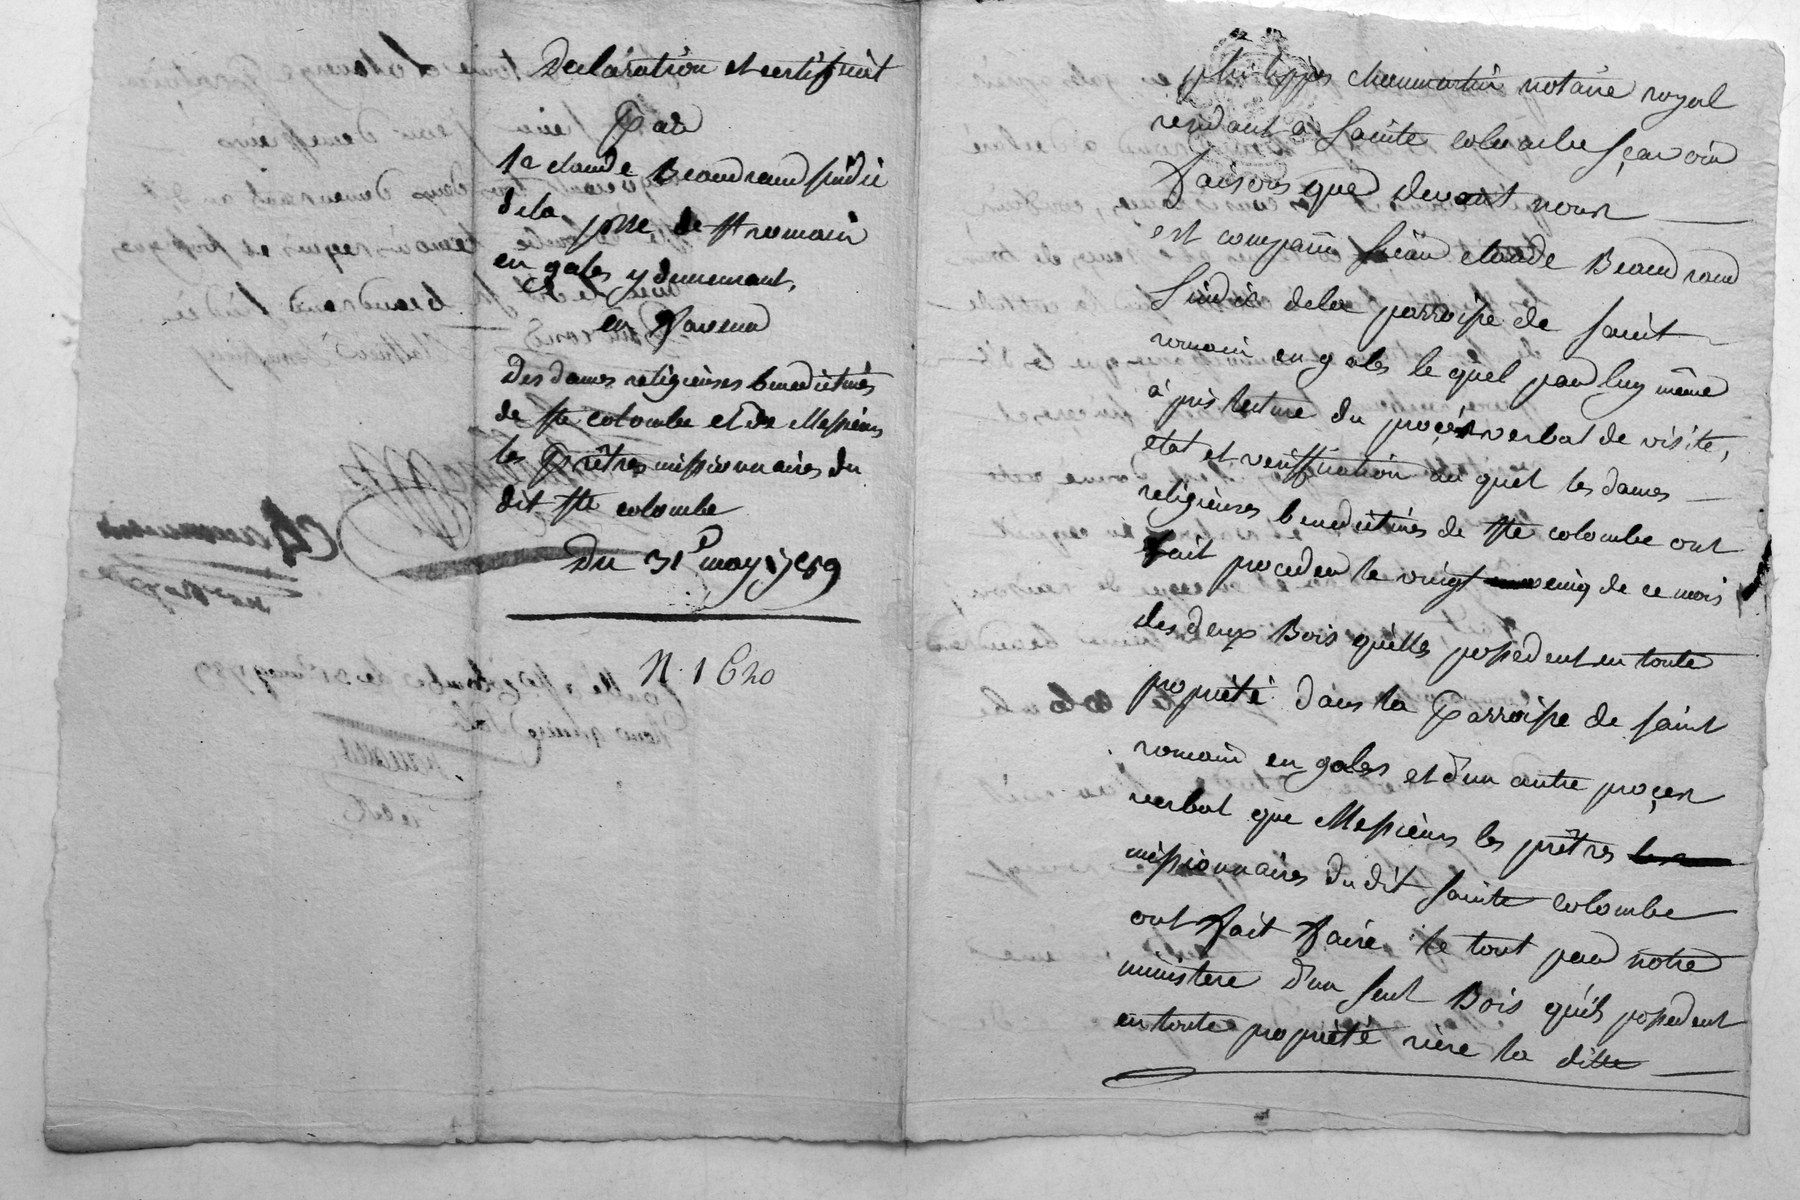 Declaration et certifficat
Par
Jean claude Beaudrand sindic
de la psse de st romain
en gales y demeurant,
en faveur
des dames religieuses benedictines
de ste colombe et de Messieurs
les Prêtres missionnaires du
dit ste colombe
Du 31e may 1789
N. 1
philippes chaumartin notaire royal
residant a sainte colombe sçavoir
faisons que devant nous
est comparu jean claude Beaudrand
sindic de la parroisse de saint
romain en gales le quel par luy même
à pris lecture du procès verbal de visite,
etat et veriffication au quel les dames
religieuses benedictines de ste colombe ont
fait proceder le vingt cinq de ce mois
des deux Bois quelles possedent en toute
propriété dans la Parroisse de saint
romain en gales et d'un autre proçes
verbal que Messieurs les prêtres
missionnaires du dit sainte colombe
ont fait faire le tout par notre
ministere d'un seul Bois qu'ils possedent
en toute propriété riere la ditte